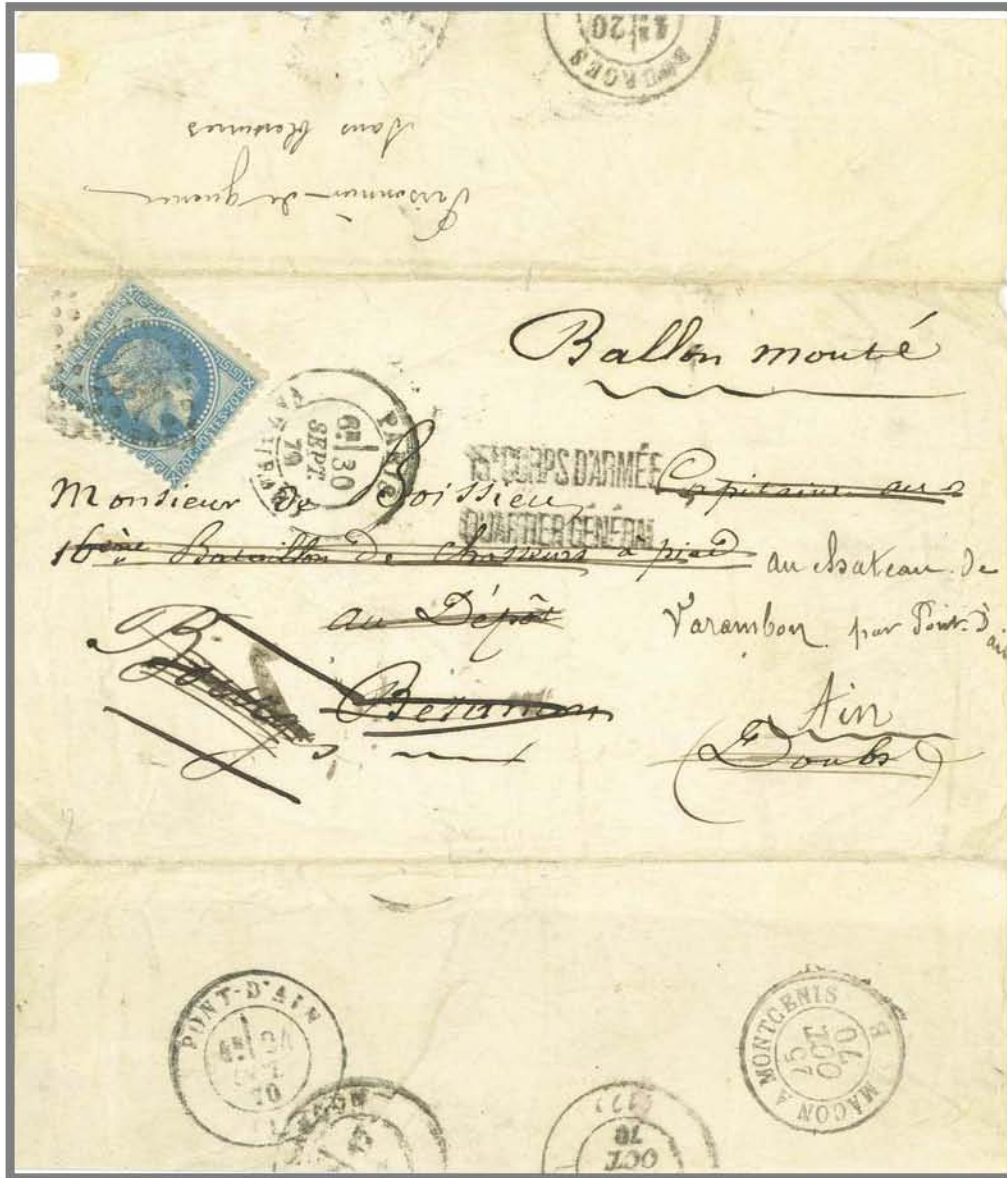 BOURGES
20
Prisonnier de guerre
sans blessures
EMPIRE FRANÇAIS
20 C POSTES 20 C
Ballon monté
PARIS
6E 30
SEPT
70
15E CORPS D'ARMÉE
QUARTIER GÉNÉRAL
Monsieur de Boissieu, Capitaine au
16ème Bataillon de Chasseurs à pied
au château de
au Dépôt
Varambon par Pont-d'ain
Besançon
Ain
Doubs
PONT-D'AIN
70
MACON A MONTCENIS
25
OCT
70
OCT
70